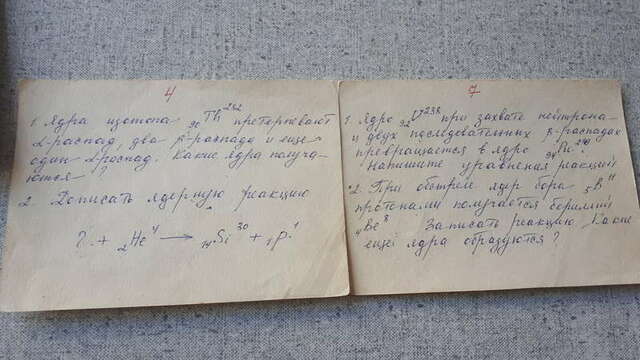 4
1. Ядра изотопа ₉₀Th²³² претерпевают
α-распад, два β-распада и еще
один α-распад. Какие ядра получа-
ются?
2. Дописать ядерную реакцию
? + ₂He⁴ → ₁₄Si³⁰ + ₁p¹
7
1. Ядро ₉₂U²³⁸ при захвате нейтрона
и двух последовательных β-распадах
превращается в ядро
Напишите уравнения реакций
2. При обстреле ядер бора ₅B¹¹
протонами получается бериллий
₄Be⁸ Записать реакцию. Какие
еще ядра образуются?